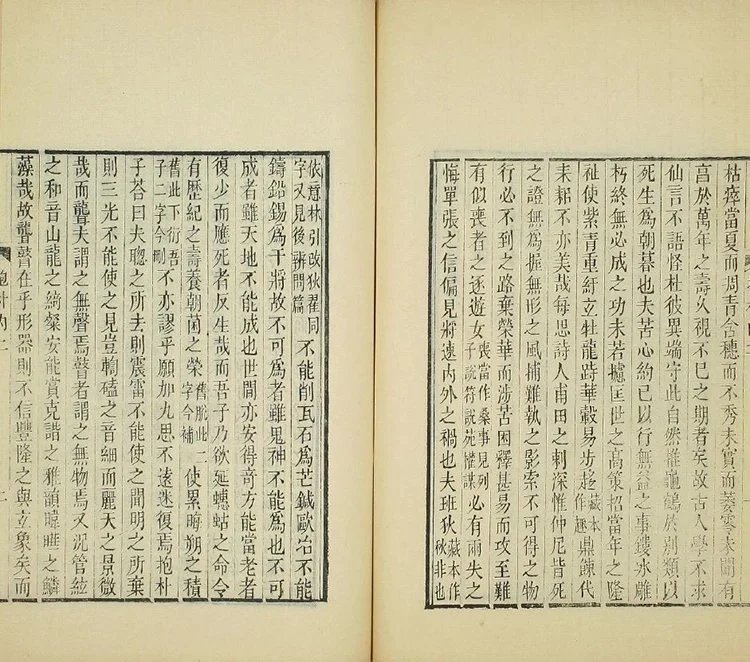 枯瘁當夏而凋青含穗而不秀未實而萎零未聞有
享於萬年之壽久視不已之期者矣故古人學不求
仙言不語怪杜彼異端守此自然推龜鶴於別類以
死生爲朝暮也夫苦心約己以行無益之事鏤冰雕
朽終無必成之功未若攄匡世之高策招當年之隆
祉使紫青重紆玄牡龍跱華轂易步趍藏本作趣鼎餗代
耒耜不亦美哉每思詩人甫田之刺深惟仲尼皆死
之證無爲握無形之風捕難執之影索不可得之物
行必不到之路棄榮華而涉苦困釋甚易而攻至難
有似喪者之逐遊女喪當作桑事見列子說符說苑權謀必有兩失之
悔單張之信偏見將速內外之禍也夫班狄藏本作秋非也
依意林引改狄翟同字又見後辨問篇不能削瓦石爲芒鍼歐冶不能
鑄鉛錫爲干將故不可爲者雖鬼神不能爲也不可
成者雖天地不能成也世閒亦安得奇方能當老者
復少而應死者反生哉而吾子乃欲延蟪蛄之命令
有歷紀之壽養朝菌之榮舊脫此二字今補使累晦朔之積
舊此下衍吾子二字今刪不亦謬乎願加九思不遠迷復焉抱朴
子荅曰夫聰之所去則震雷不能使之聞明之所棄
則三光不能使之見豈輷磕之音細而麗天之景微
哉而聾夫謂之無聲焉瞽者謂之無物焉又況管絃
之和音山龍之綺粲安能賞克諧之雅韻暐曄之鱗
藻哉故聾瞽在乎形器則不信豐隆之與玄象矣而